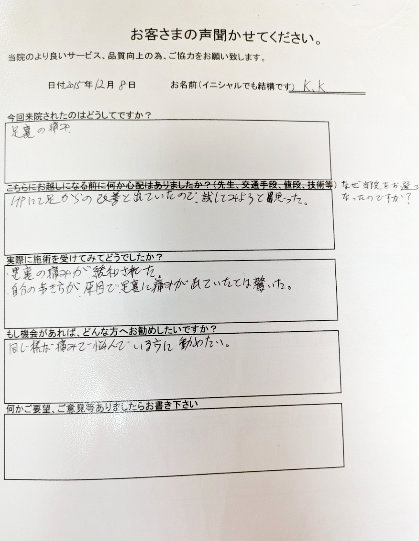 お客さまの声聞かせてください。
当院のより良いサービス、品質向上の為、ご協力をお願い致します。
日付2015年12月8日 お名前(イニシャルでも結構です) K.K
今回来院されたのはどうしてですか?
足裏の痛み
こちらにお越しになる前に何か心配はありましたか?(先生、交通手段、値段、技術等) なぜ当院をお選びに
なったのですか?
HPにて足からの改善と出ていたので、試してみようと思った。
実際に施術を受けてみてどうでしたか?
足裏の痛みが緩和された。
自分の歩き方が原因で足裏に痛みが出ていたとは驚いた。
もし機会があれば、どんな方へお勧めしたいですか?
同じ様な痛みで悩んでいる方に勧めたい。
何かご要望、ご意見等ありましたらお書き下さい